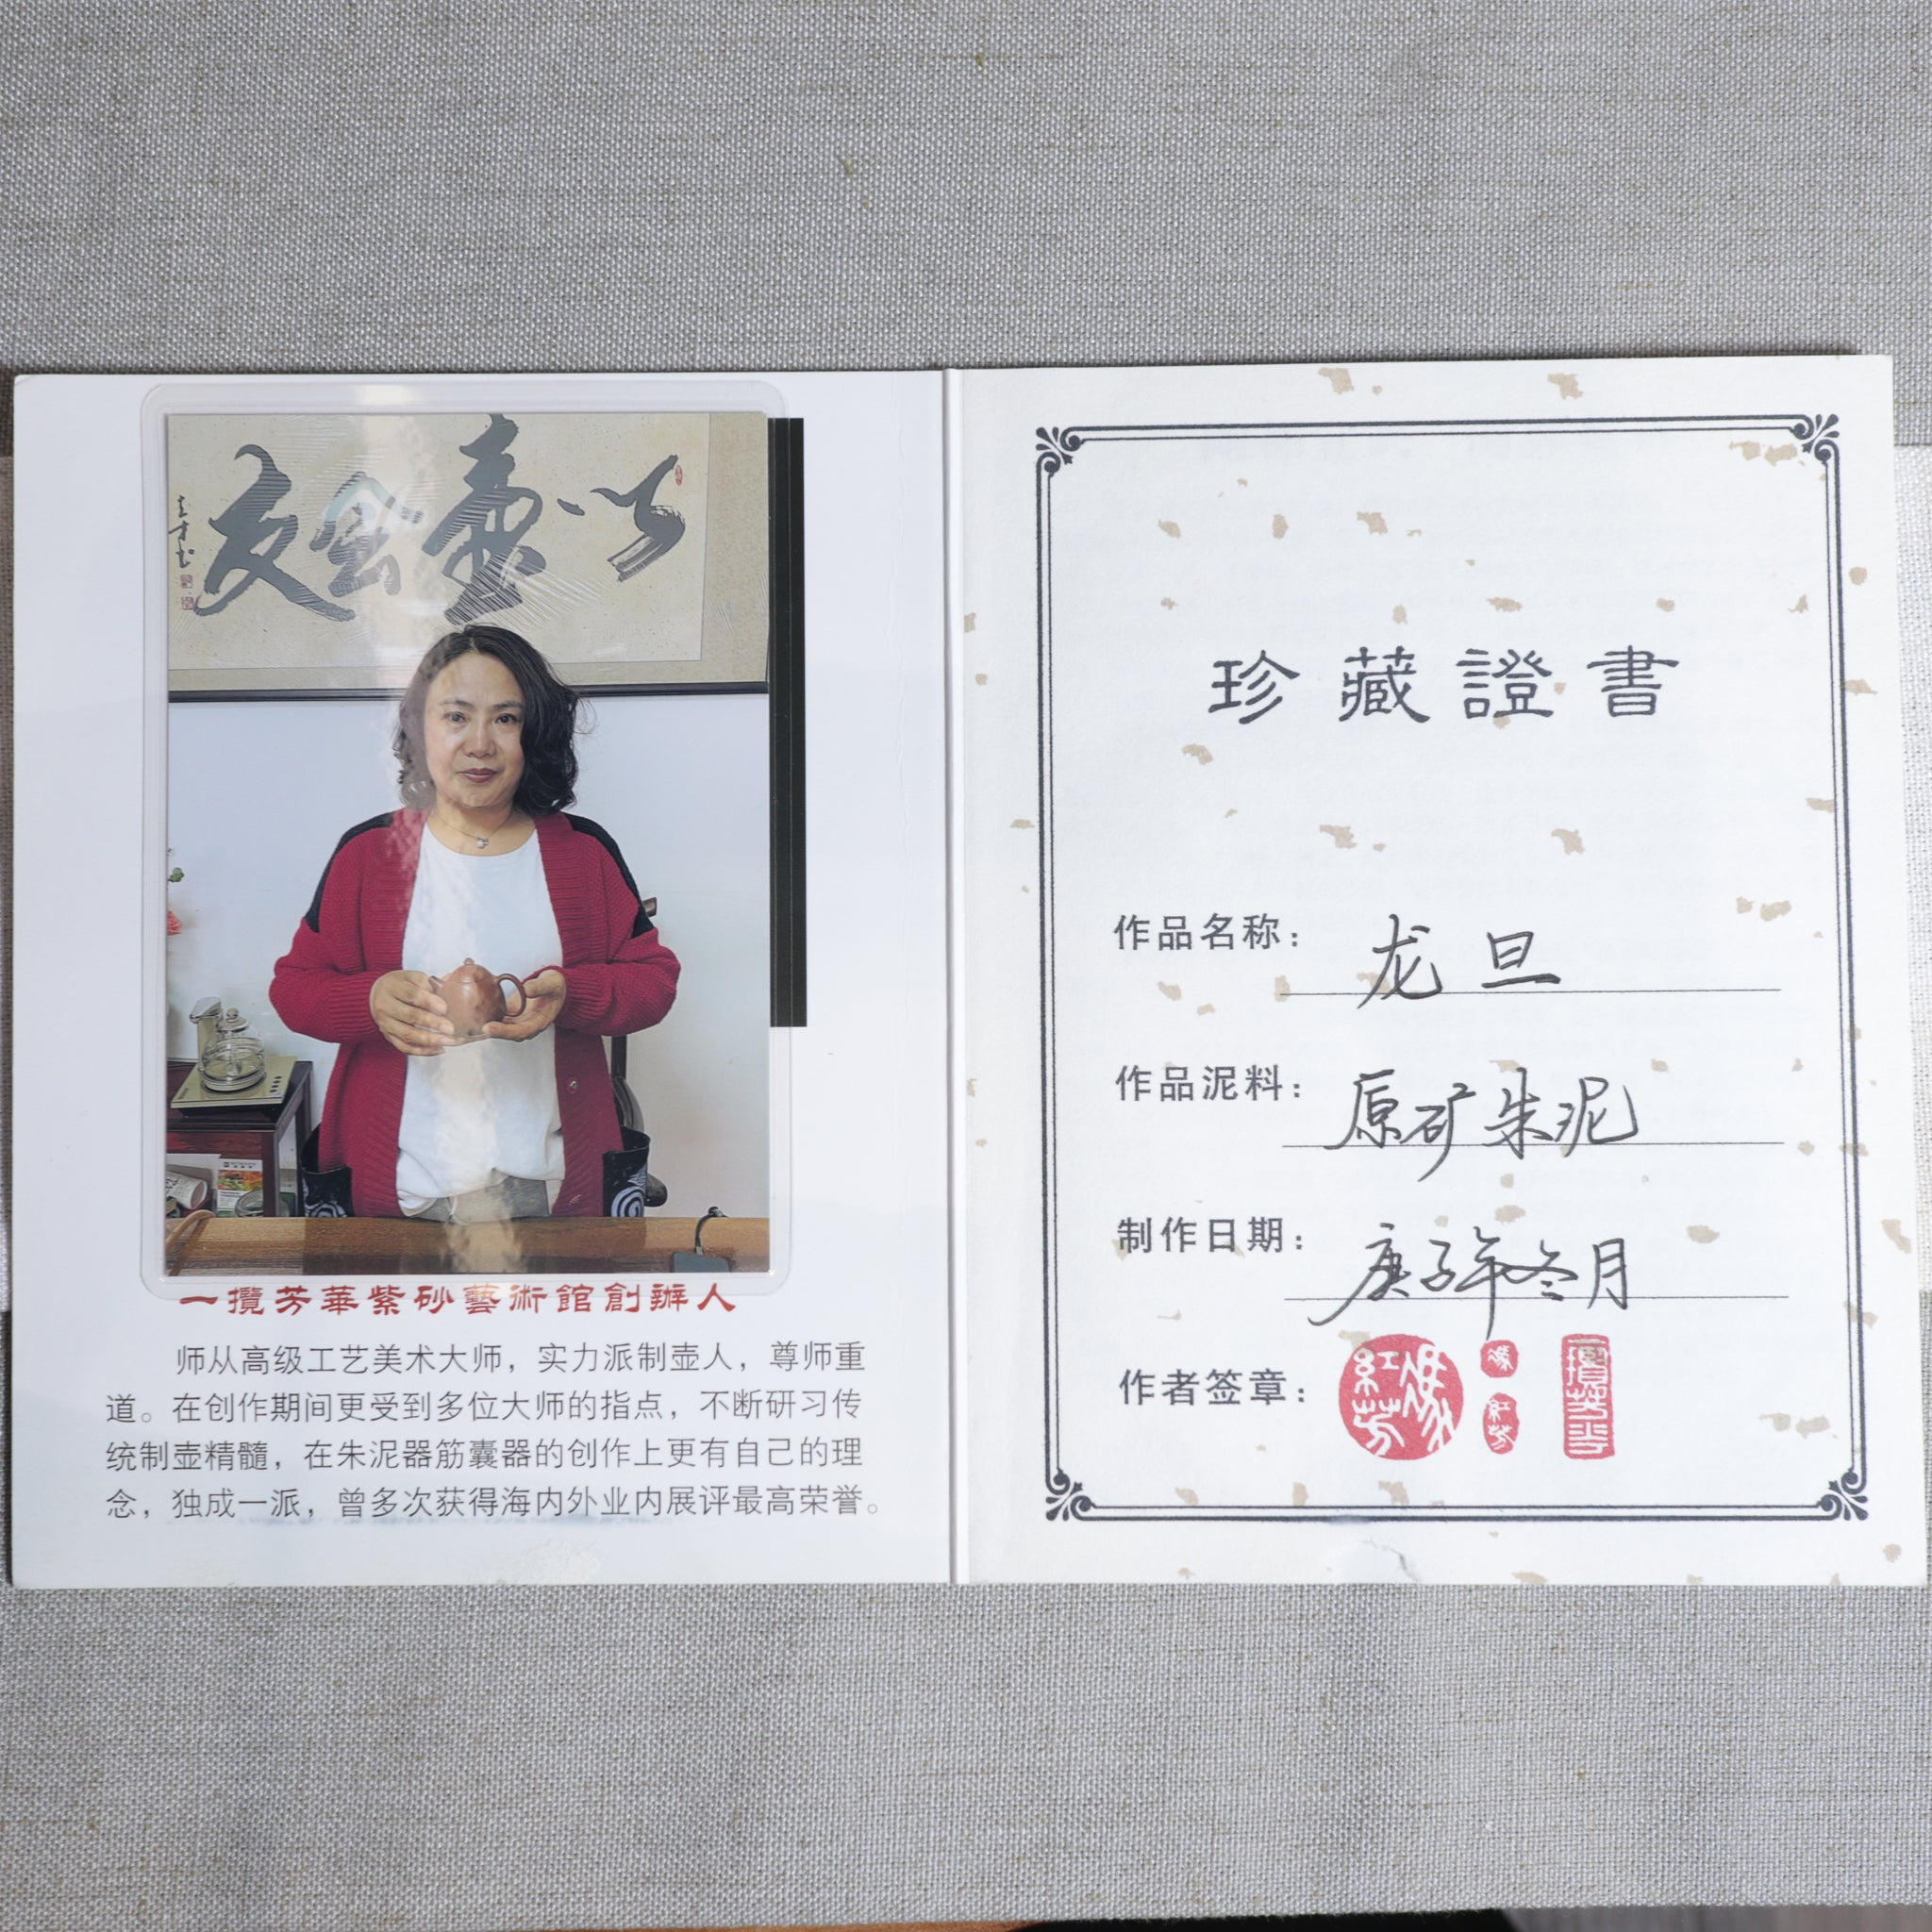 以壶會友
一攬芳華紫砂藝術館創辦人
师从高级工艺美术大师，实力派制壶人，尊师重
道。在创作期间更受到多位大师的指点，不断研习传
统制壶精髓，在朱泥器筋囊器的创作上更有自己的理
念，独成一派，曾多次获得海内外业内展评最高荣誉。
珍藏證書
作品名称：龙旦
作品泥料：原矿朱泥
制作日期：庚子年冬月
作者签章：
馮紅芳
馮
紅芳